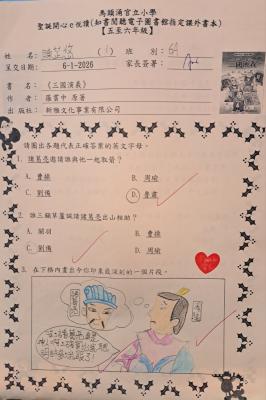 馬頭涌官立小學
聖誕開心e悅讀(知書閱聽電子圖書館指定課外書本)
【五至六年級】
姓名: (1) 班別: 6A
呈交日期: 6-1-2026 家長簽署:
書名: 《三國演義》
作者: 羅貫中 原著
出版社: 新雅文化事業有限公司
請圈出各題代表正確答案的英文字母。
1. 諸葛亮邀請誰與他一起取箭?
A. 曹操 B. 周瑜
C. 劉備 D. 魯肅
2. 誰三顧草蘆誠請諸葛亮出山相助?
A. 關羽 B. 曹操
C. 劉備 D. 周瑜
3. 在下格內畫出令你印象最深刻的一個片段。
諸葛亮
周瑜